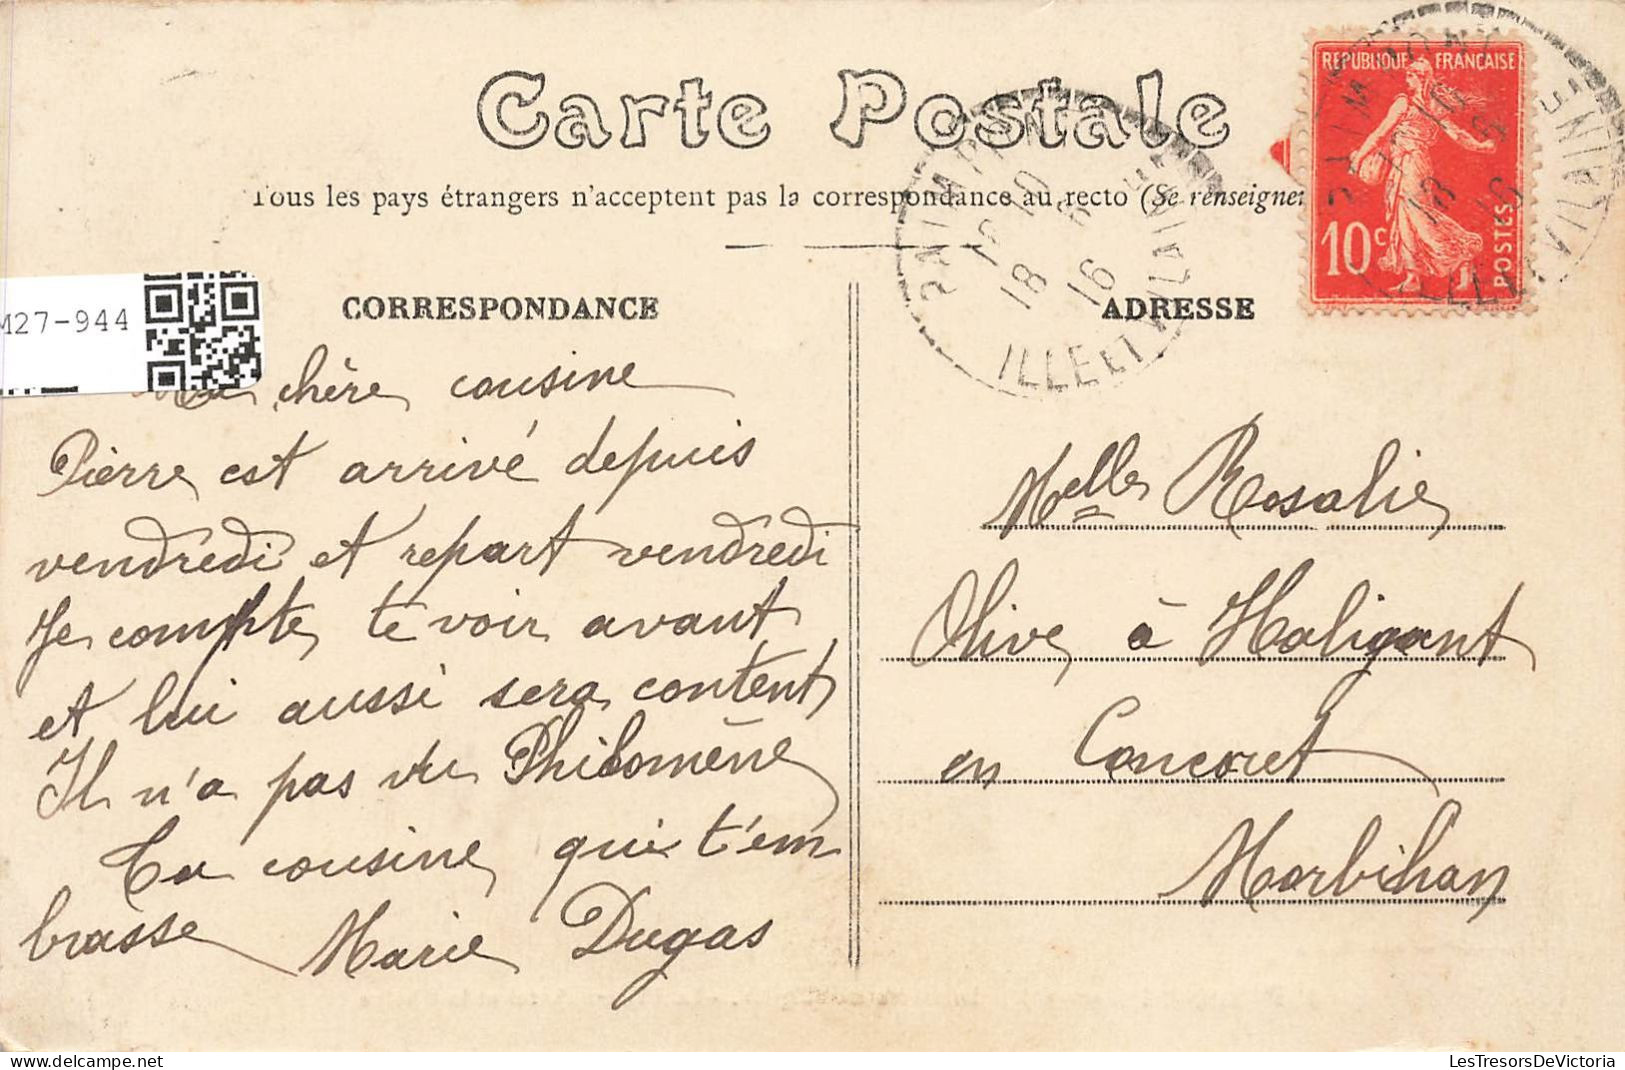 Carte Postale
Tous les pays étrangers n'acceptent pas la correspondance au recto (Se renseigner
REPUBLIQUE FRANÇAISE
10c
POSTES
ILLE ET VILAINE
18
16
M27-944
CORRESPONDANCE
Ma chère cousine
Pierre est arrivé depuis
vendredi et repart vendredi
Je compte te voir avant
et lui aussi sera content
Il n'a pas vu Philomène
Ta cousine qui t'em
brasse Marie Dugas
ADRESSE
Melle Rosalie
Olive à Haligant
en Concoret
Morbihan
LesTresorsDeVictoria